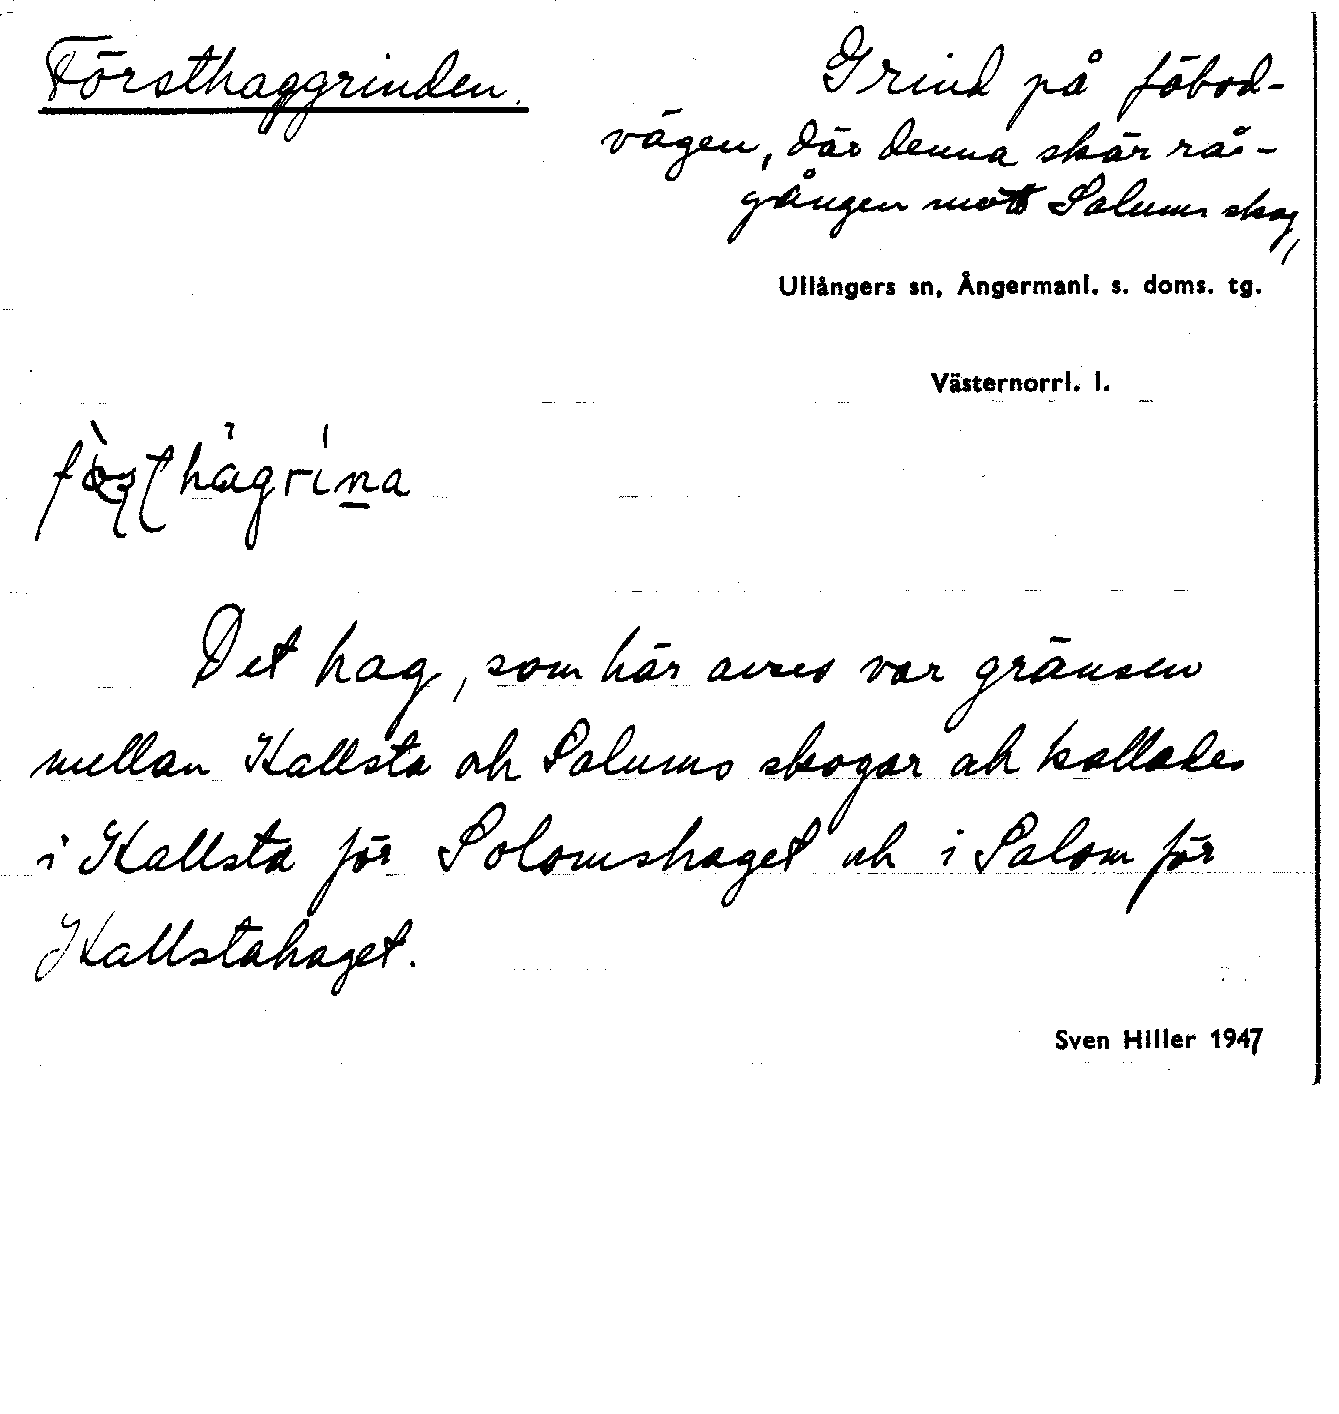 Försthaggrinden.
Grind på fäbod-
vägen, där denna skär rå-
gången mot Salums skog,
Ullångers sn, Ångermanl. s. doms. tg.
Västernorrl. l.
Det hag, som här avses var gränsen
mellan Kallsta och Salums skogar och kallades
i Kallsta för Solomshaget och i Salom för
Kallstahaget.
Sven Hiller 1947